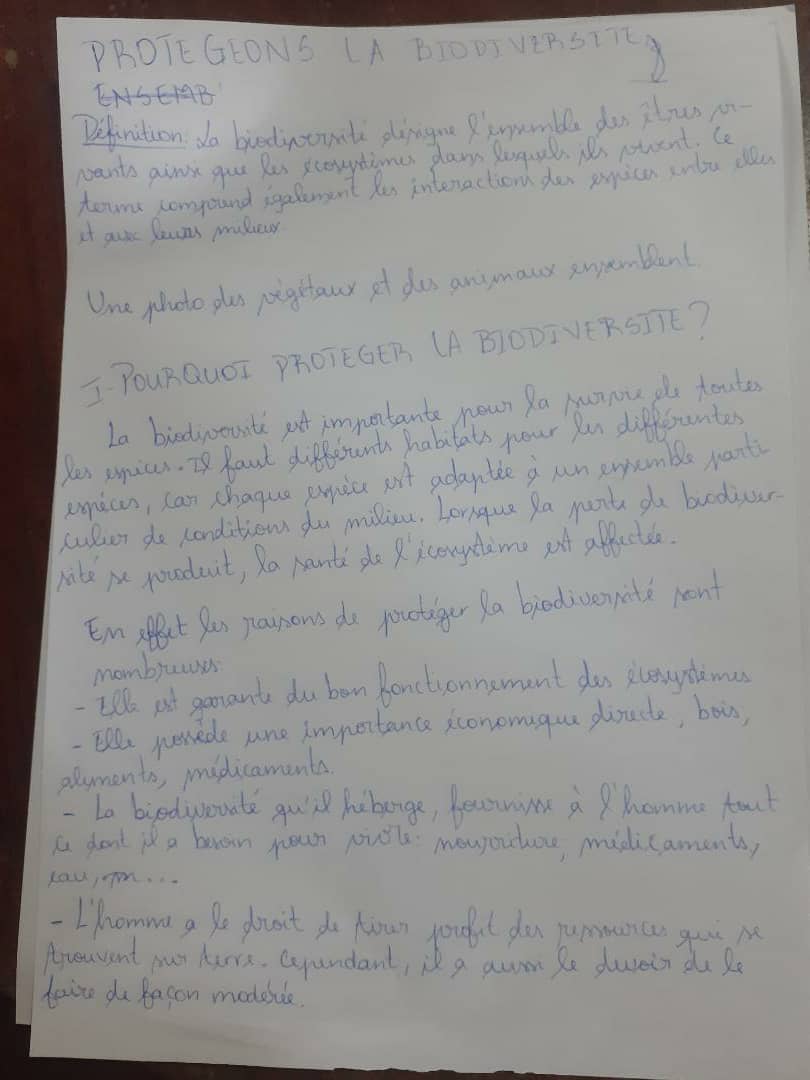 PROTEGEONS LA BIODIVERSITE
ENSEMB
Définition: La biodiversité désigne l'ensemble des êtres vi-
vants ainsi que les écosystèmes dans lesquels ils vivent. Ce
terme comprend également les interactions des espèces entre elles
et aux leurs milieux.
Une photo des végétaux et des animaux ensemblent.
I-POURQUOI PROTEGER LA BIODIVERSITE?
La biodiversité est importante pour la survie de toutes
les espèces. Il faut différents habitats pour les différentes
espèces, car chaque espèce est adaptée à un ensemble parti-
culier de conditions du milieu. Lorsque la perte de biodiver-
sité se produit, la santé de l'écosystème est affectée.
En effet les raisons de protéger la biodiversité sont
nombreuses.
- Elle est garante du bon fonctionnement des écosystèmes
- Elle possède une importance économique directe, bois,
aliments, médicaments.
- La biodiversité qu'il héberge, fournisse à l'homme tout
ce dont il a besoin pour vivre: nourriture, médicaments,
eau, ...
- L'homme a le droit de tirer profit des ressources qui se
trouvent sur terre. Cependant, il a aussi le devoir de le
faire de façon modérée.